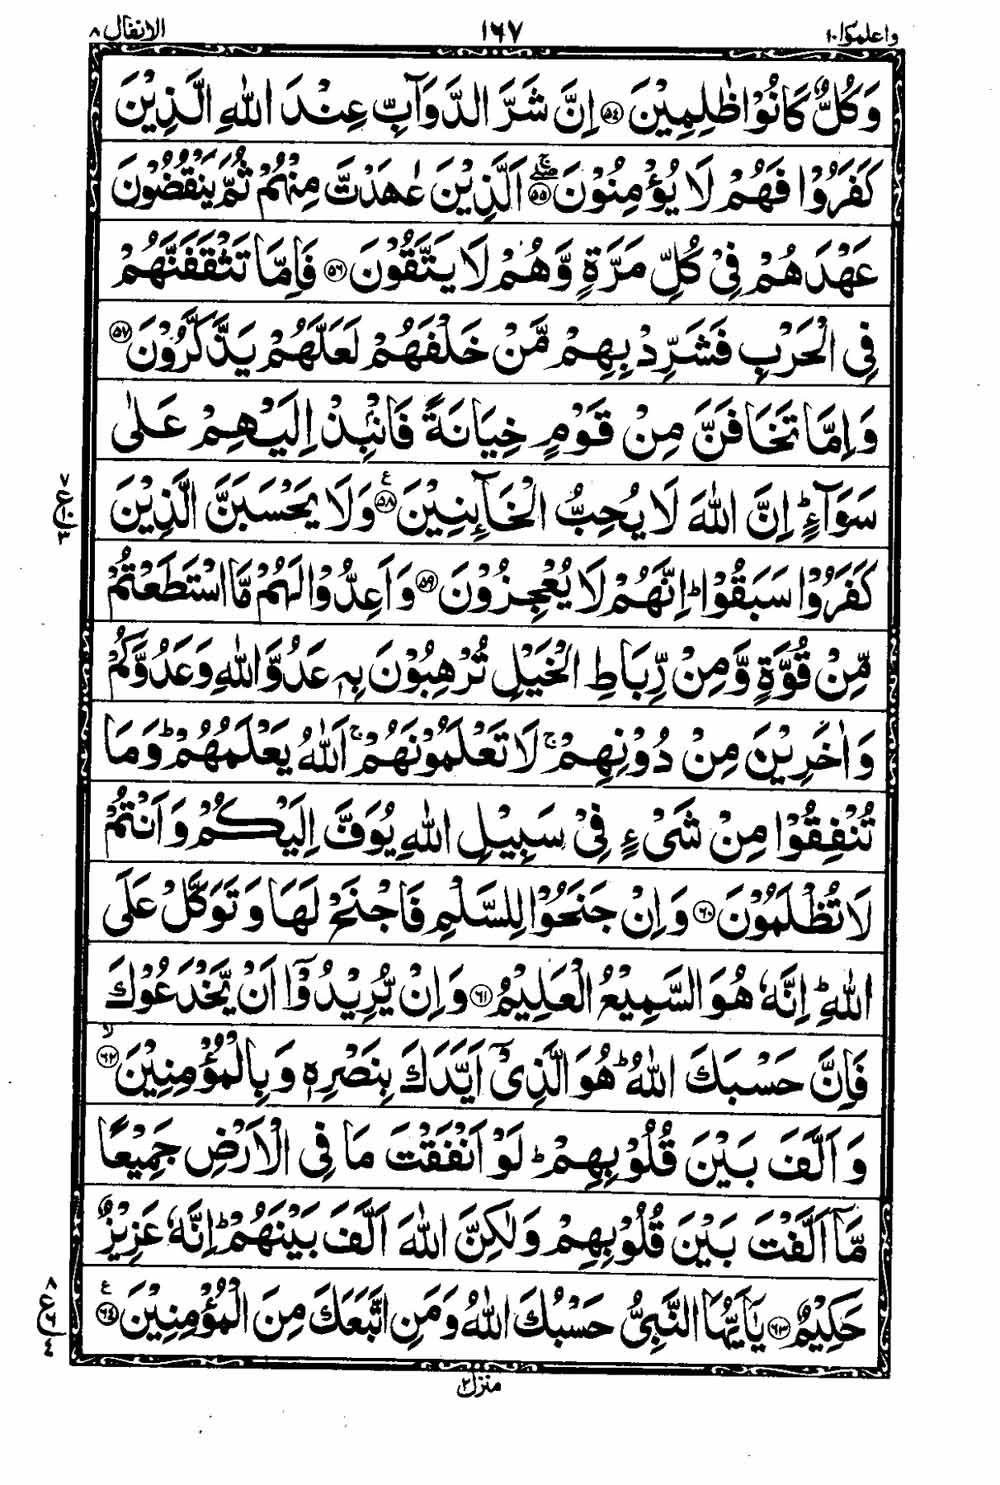 واعلموا ١٠ ١٦٧ الانفال ٨
وَكُلٌّ كَانُوْا ظٰلِمِيْنَ ﴿٥٤﴾ اِنَّ شَرَّ الدَّوَآبِّ عِنْدَ اللّٰهِ الَّذِيْنَ
كَفَرُوْا فَهُمْ لَا يُؤْمِنُوْنَ ۖۚ ﴿٥٥﴾ اَلَّذِيْنَ عٰهَدْتَّ مِنْهُمْ ثُمَّ يَنْقُضُوْنَ
عَهْدَهُمْ فِيْ كُلِّ مَرَّةٍ وَّهُمْ لَا يَتَّقُوْنَ ﴿٥٦﴾ فَاِمَّا تَثْقَفَنَّهُمْ
فِي الْحَرْبِ فَشَرِّدْ بِهِمْ مَّنْ خَلْفَهُمْ لَعَلَّهُمْ يَذَّكَّرُوْنَ ﴿٥٧﴾
وَاِمَّا تَخَافَنَّ مِنْ قَوْمٍ خِيَانَةً فَانْۢبِذْ اِلَيْهِمْ عَلٰى
سَوَآءٍ ؕ اِنَّ اللّٰهَ لَا يُحِبُّ الْخَآئِنِيْنَ ﴿٥٨﴾ ع وَلَا يَحْسَبَنَّ الَّذِيْنَ
٧ ع ١٠ ٣
كَفَرُوْا سَبَقُوْا ؕ اِنَّهُمْ لَا يُعْجِزُوْنَ ﴿٥٩﴾ وَاَعِدُّوْا لَهُمْ مَّا اسْتَطَعْتُمْ
مِّنْ قُوَّةٍ وَّمِنْ رِّبَاطِ الْخَيْلِ تُرْهِبُوْنَ بِهٖ عَدُوَّ اللّٰهِ وَعَدُوَّكُمْ
وَاٰخَرِيْنَ مِنْ دُوْنِهِمْ ۚ لَا تَعْلَمُوْنَهُمْ ۚ اَللّٰهُ يَعْلَمُهُمْ ؕ وَمَا
تُنْفِقُوْا مِنْ شَيْءٍ فِيْ سَبِيْلِ اللّٰهِ يُوَفَّ اِلَيْكُمْ وَاَنْتُمْ
لَا تُظْلَمُوْنَ ﴿٦٠﴾ وَاِنْ جَنَحُوْا لِلسَّلْمِ فَاجْنَحْ لَهَا وَتَوَكَّلْ عَلَى
اللّٰهِ ؕ اِنَّهٗ هُوَ السَّمِيْعُ الْعَلِيْمُ ﴿٦١﴾ وَاِنْ يُّرِيْدُوْٓا اَنْ يَّخْدَعُوْكَ
فَاِنَّ حَسْبَكَ اللّٰهُ ؕ هُوَ الَّذِيْٓ اَيَّدَكَ بِنَصْرِهٖ وَبِالْمُؤْمِنِيْنَ ۙ ﴿٦٢﴾
وَاَلَّفَ بَيْنَ قُلُوْبِهِمْ ؕ لَوْ اَنْفَقْتَ مَا فِي الْاَرْضِ جَمِيْعًا
مَّآ اَلَّفْتَ بَيْنَ قُلُوْبِهِمْ وَلٰكِنَّ اللّٰهَ اَلَّفَ بَيْنَهُمْ ؕ اِنَّهٗ عَزِيْزٌ
حَكِيْمٌ ﴿٦٣﴾ يٰٓاَيُّهَا النَّبِيُّ حَسْبُكَ اللّٰهُ وَمَنِ اتَّبَعَكَ مِنَ الْمُؤْمِنِيْنَ ﴿٦٤﴾ ع
٨ ع ٦ ٤
منزل ٢